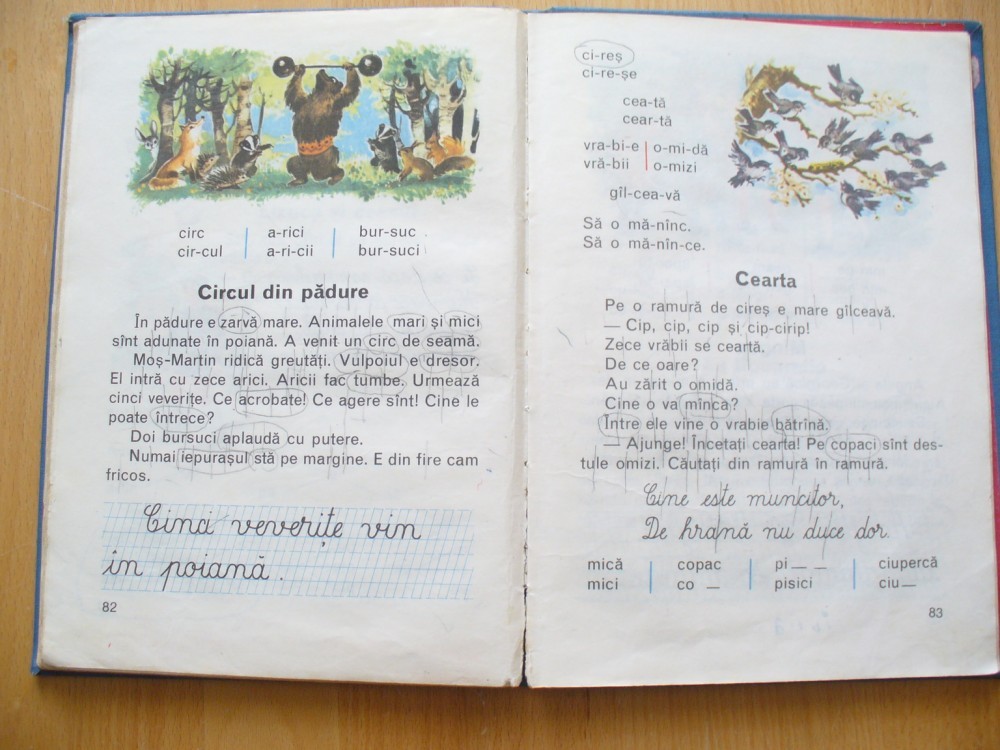 circ a-rici bur-suc
cir-cul a-ri-cii bur-suci
Circul din pădure
În pădure e zarvă mare. Animalele mari și mici
sînt adunate în poiană. A venit un circ de seamă.
Moș-Martin ridică greutăți. Vulpoiul e dresor.
El intră cu zece arici. Aricii fac tumbe. Urmează
cinci veverițe. Ce acrobate! Ce agere sînt! Cine le
poate întrece?
Doi bursuci aplaudă cu putere.
Numai iepurașul stă pe margine. E din fire cam
fricos.
Cinci veverițe vin
în poiană.
82
ci-reș
ci-re-șe
cea-tă
cear-tă
vra-bi-e o-mi-dă
vră-bii o-mizi
gîl-cea-vă
Să o mă-nînc.
Să o mă-nîn-ce.
Cearta
Pe o ramură de cireș e mare gîlceavă.
— Cip, cip, cip și cip-cirip!
Zece vrăbii se ceartă.
De ce oare?
Au zărit o omidă.
Cine o va mînca?
Între ele vine o vrabie bătrînă.
— Ajunge! Încetați cearta! Pe copaci sînt des-
tule omizi. Căutați din ramură în ramură.
Cine este muncitor,
De hrană nu duce dor.
mică copac pi_ _ ciupercă
mici co _ pisici ciu_
83